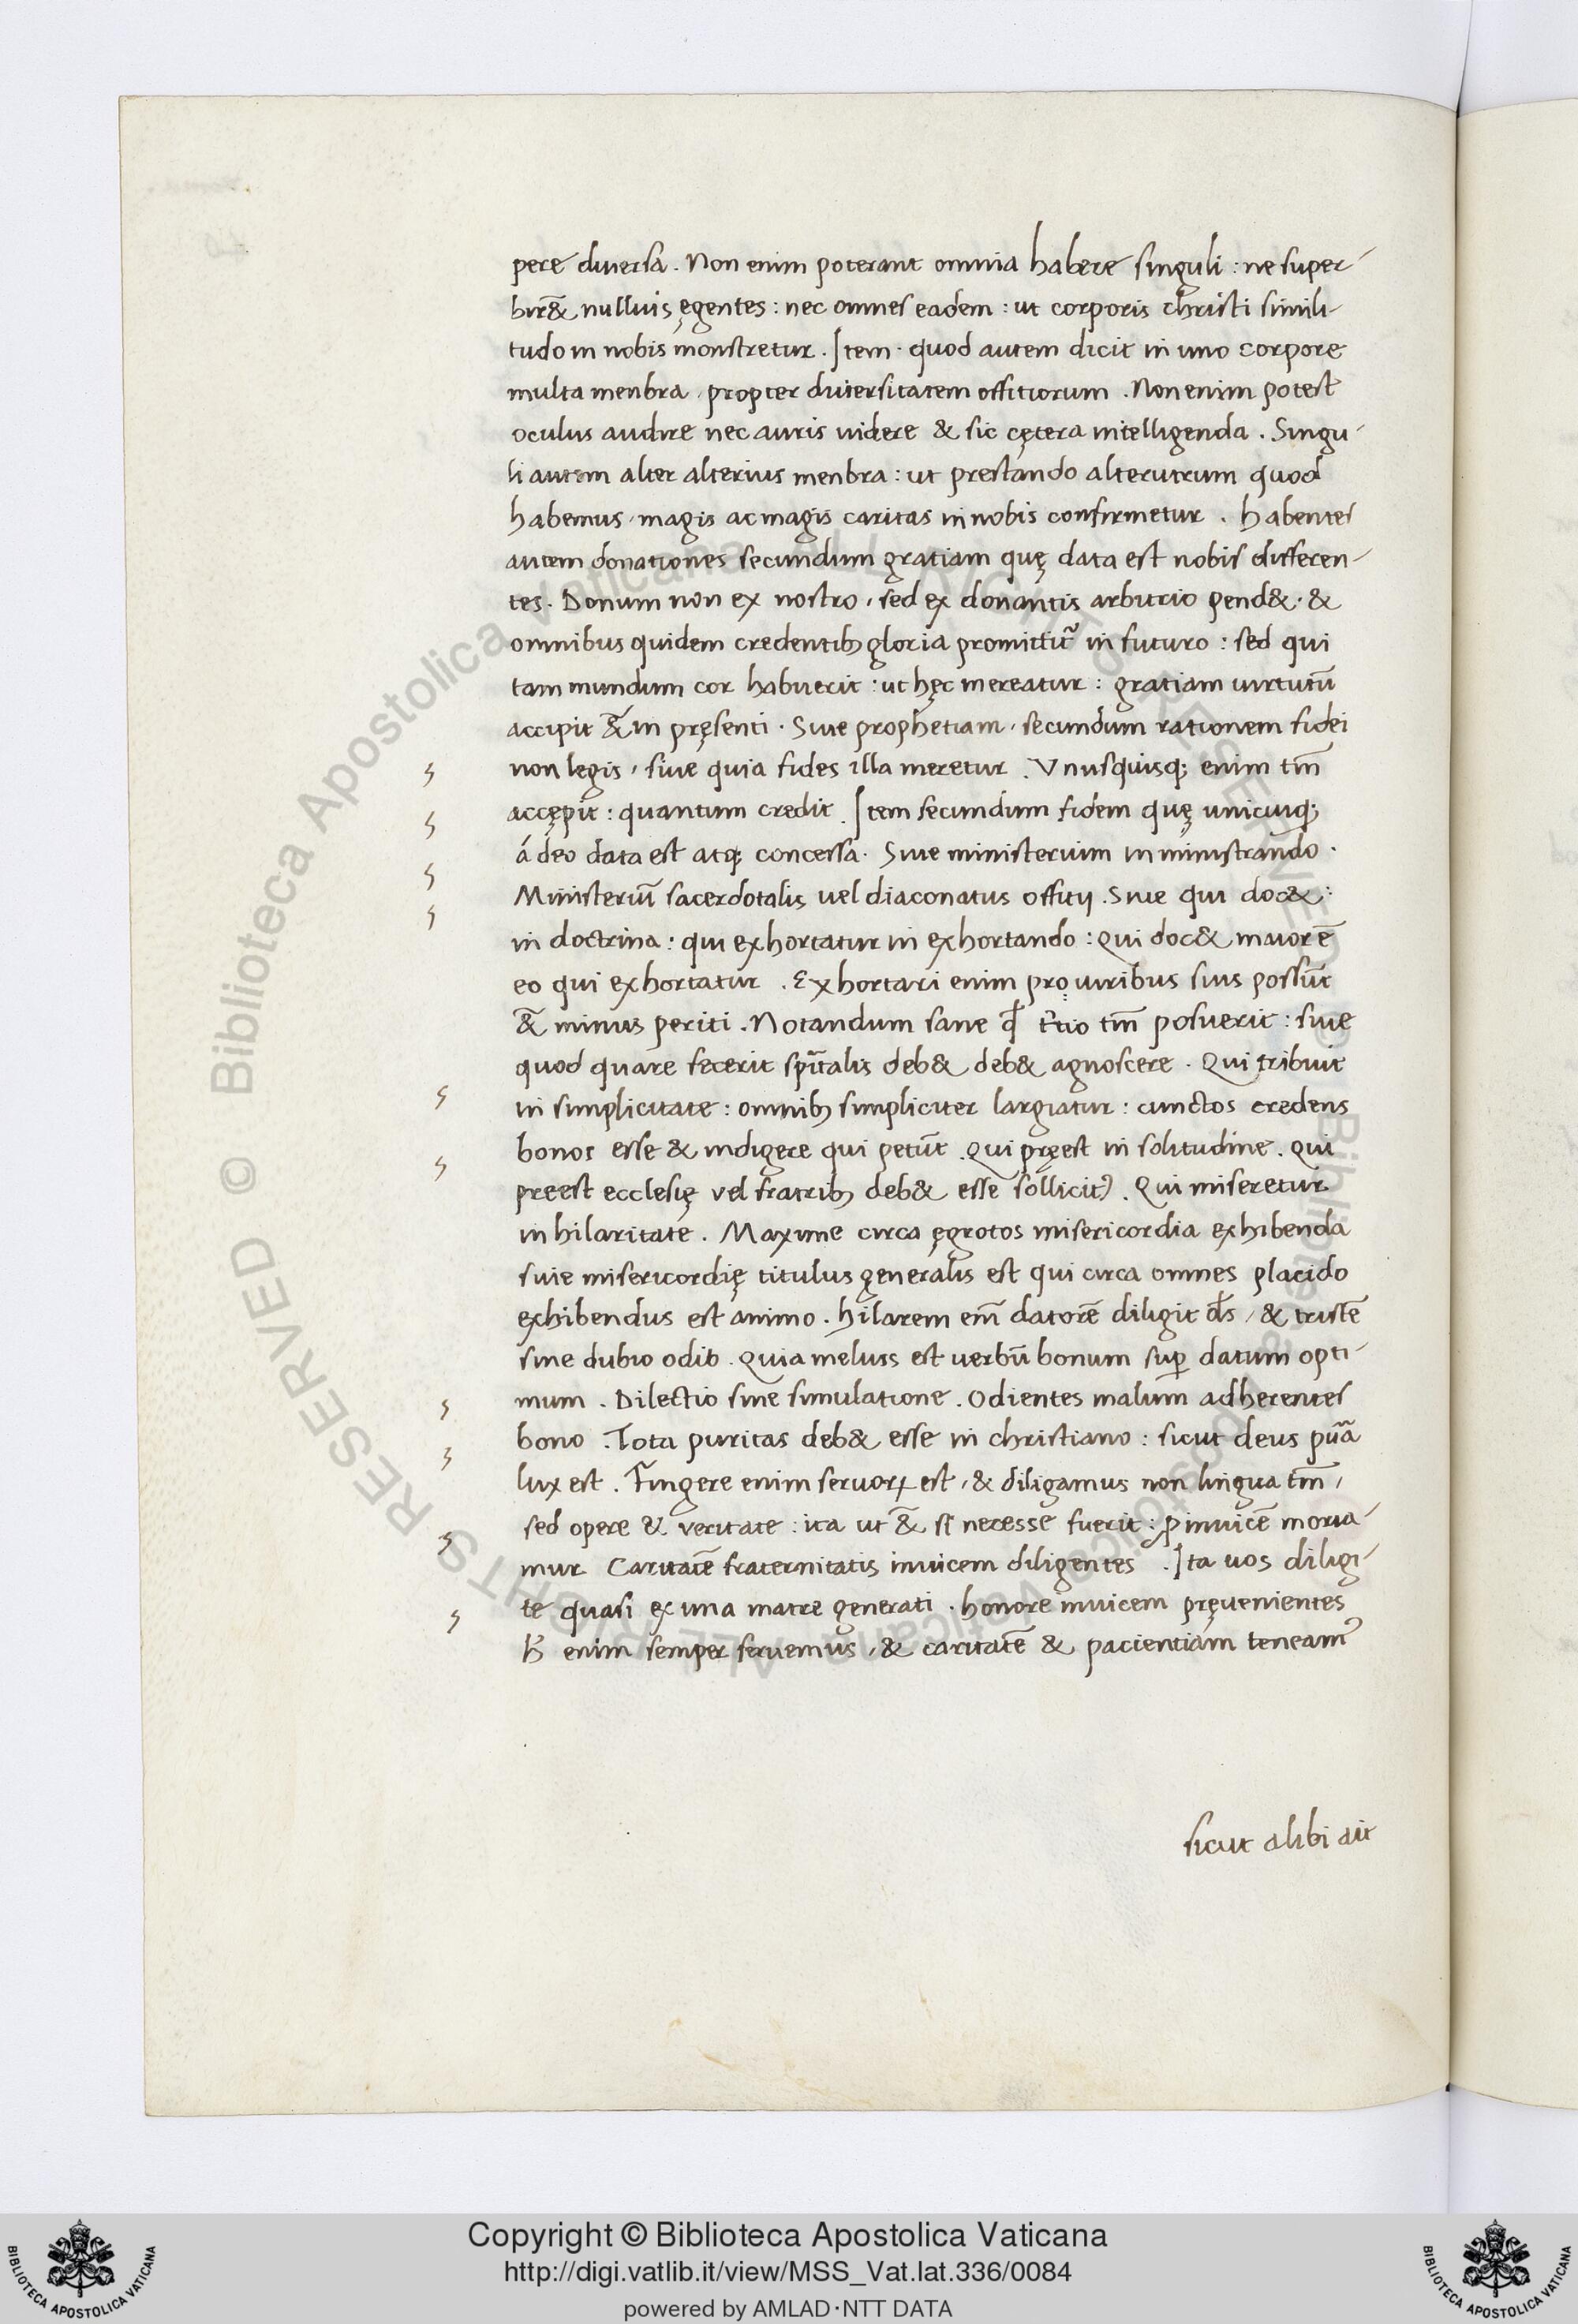 pere diuersa. Non enim poterant omnia habere singuli: ne super-
bir& nulluis ęgentes: nec omnes eadem: ut corporis christi simili-
tudo in nobis monstretur. Item. quod autem dicit in uno corpore
multa menbra, propter diuersitatem offitiorum. Non enim potest
oculus audire nec auris uidere & sic cętera intelligenda. Singu-
li autem alter alterius menbra: ut prestando alterutrum quod
habemus, magis ac magis caritas in nobis confirmetur. habentes
autem donationes secundum gratiam quę data est nobis differen-
tes. Donum non ex nostro, sed ex donantis arbitrio pend&. &
omnibus quidem credentib; gloria promittit̃ in futuro: sed qui
tam mundum cor habuerit: ut hęc mereatur: gratiam uirtutũ
accipit &̃ in pręsenti. Siue prophetiam, secundum rationem fidei
non legis, siue quia fides illa meretur. Vnusquisq; enim tm̃
accępit: quantum credit. Item secundum fidem quę unicuiq;
á deo data est atq; concessa. Siue ministerium in ministrando.
Ministeriũ sacerdotalis uel diaconatus offitij. Siue qui doc&:
in doctrina: qui exhortatur in exhortando: Qui doc& maiorẽ
eo qui exhortatur. Exhortari enim pro uiribus suis possũt
&̃ minus periti. Notandum sane qđ t̃tio tm̃ posuerit: siue
quod quare fecerit spũtalis deb& deb& agnoscere. Qui tribuit
in simplicitate: omnib; simpliciter largiatur: cunctos credens
bonos esse & indigere qui petũt. Qui pręest in solitudine. Qui
preest ecclesię vel fratrib; deb& esse sollicitꝰ. Qui miseretur
in hilaritate. Maxime circa ęgrotos misericordia exhibenda
suie misericordię titulus generalis est qui circa omnes placido
exhibendus est animo. hilarem em̃ datorẽ diligit ds̄, & tristẽ
sine dubio odit. Quia melius est uerbũ bonum suꝑ datum opti-
mum. Dilectio sine simulatione. Odientes malum adherentes
bono. Tota puritas deb& esse in christiano: sicut deus pũa
lux est. Fingere enim seruoꝝ est, & diligamus non lingua tm̃,
sed opere & veritate: ita ut &̃ si necesse fuerit: ꝓ inuicẽ moria-
mur Caritatẽ fraternitatis inuicem diligentes. Ita uos diligi-
te quasi ex una matre generati. honore inuicem pręuenientes
enim semper seruemus, & caritatẽ & pacientiam teneamꝰ
sicut alibi ait
Copyright © Biblioteca Apostolica Vaticana
http://digi.vatlib.it/view/MSS_Vat.lat.336/0084
powered by AMLAD·NTT DATA
BIBLIOTECA APOSTOLICA VATICANA
BIBLIOTECA APOSTOLICA VATICANA